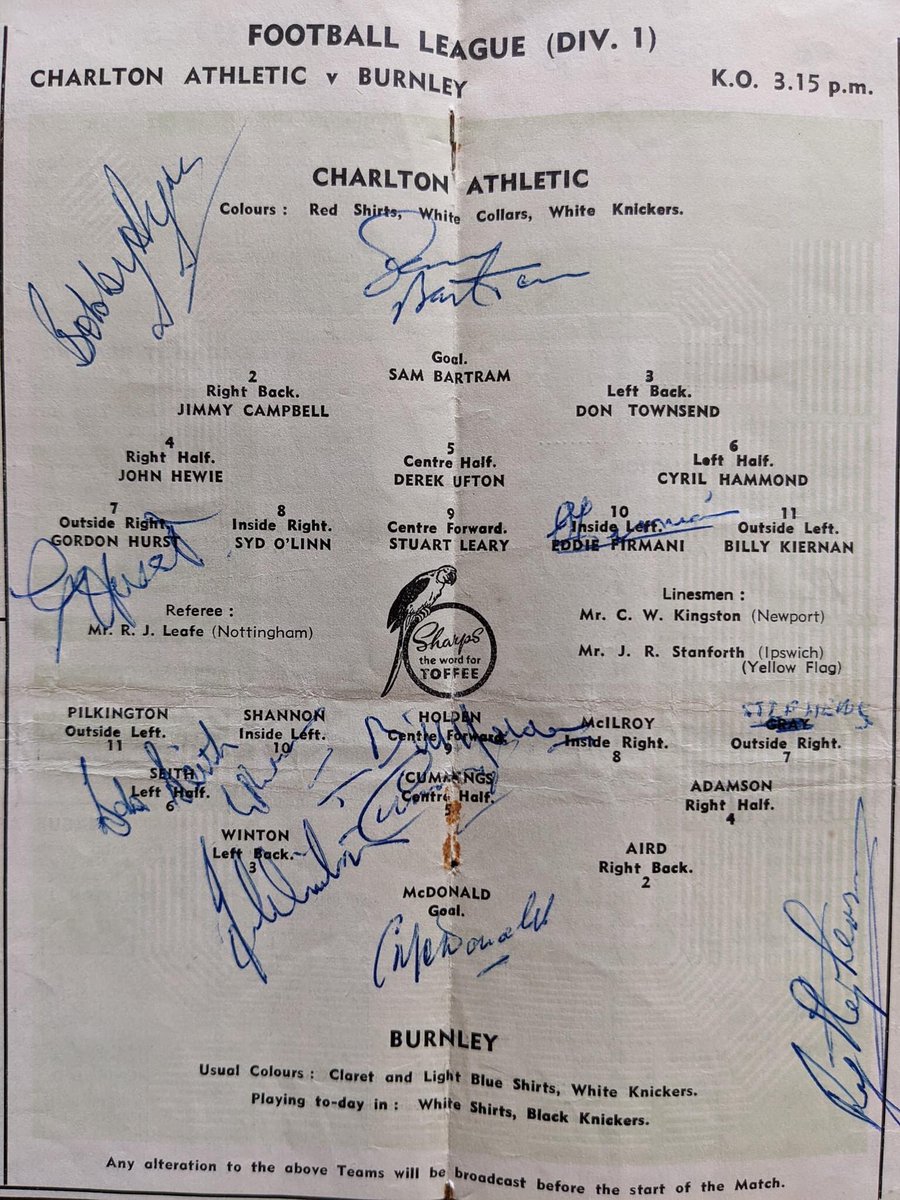 FOOTBALL LEAGUE (DIV. 1)
CHARLTON ATHLETIC v BURNLEY K.O. 3.15 p.m.
CHARLTON ATHLETIC
Colours : Red Shirts, White Collars, White Knickers.
Sam
Bartram
Goal.
SAM BARTRAM
2 3
Right Back. Left Back.
JIMMY CAMPBELL DON TOWNSEND
4 5 6
Right Half. Centre Half. Left Half.
JOHN HEWIE DEREK UFTON CYRIL HAMMOND
7 8 9 10 11
Outside Right. Inside Right. Centre Forward. Inside Left. Outside Left.
GORDON HURST SYD O'LINN STUART LEARY EDDIE FIRMANI BILLY KIERNAN
G Hurst
Referee :
Mr. R. J. Leafe (Nottingham)
Linesmen :
Mr. C. W. Kingston (Newport)
Mr. J. R. Stanforth (Ipswich)
(Yellow Flag)
Sharps
the word for
TOFFEE
STEPHENS
PILKINGTON SHANNON HOLDEN McILROY GRAY
Outside Left. Inside Left. Centre Forward. Inside Right. Outside Right.
11 10 9 8 7
Bill Holden
SEITH CUMMINGS ADAMSON
Left Half. Centre Half. Right Half.
6 5 4
Bob Seith
WINTON AIRD
Left Back. Right Back.
3 2
McDONALD
Goal.
C McDonald
BURNLEY
Usual Colours : Claret and Light Blue Shirts, White Knickers.
Playing to-day in : White Shirts, Black Knickers.
Any alteration to the above Teams will be broadcast before the start of the Match.